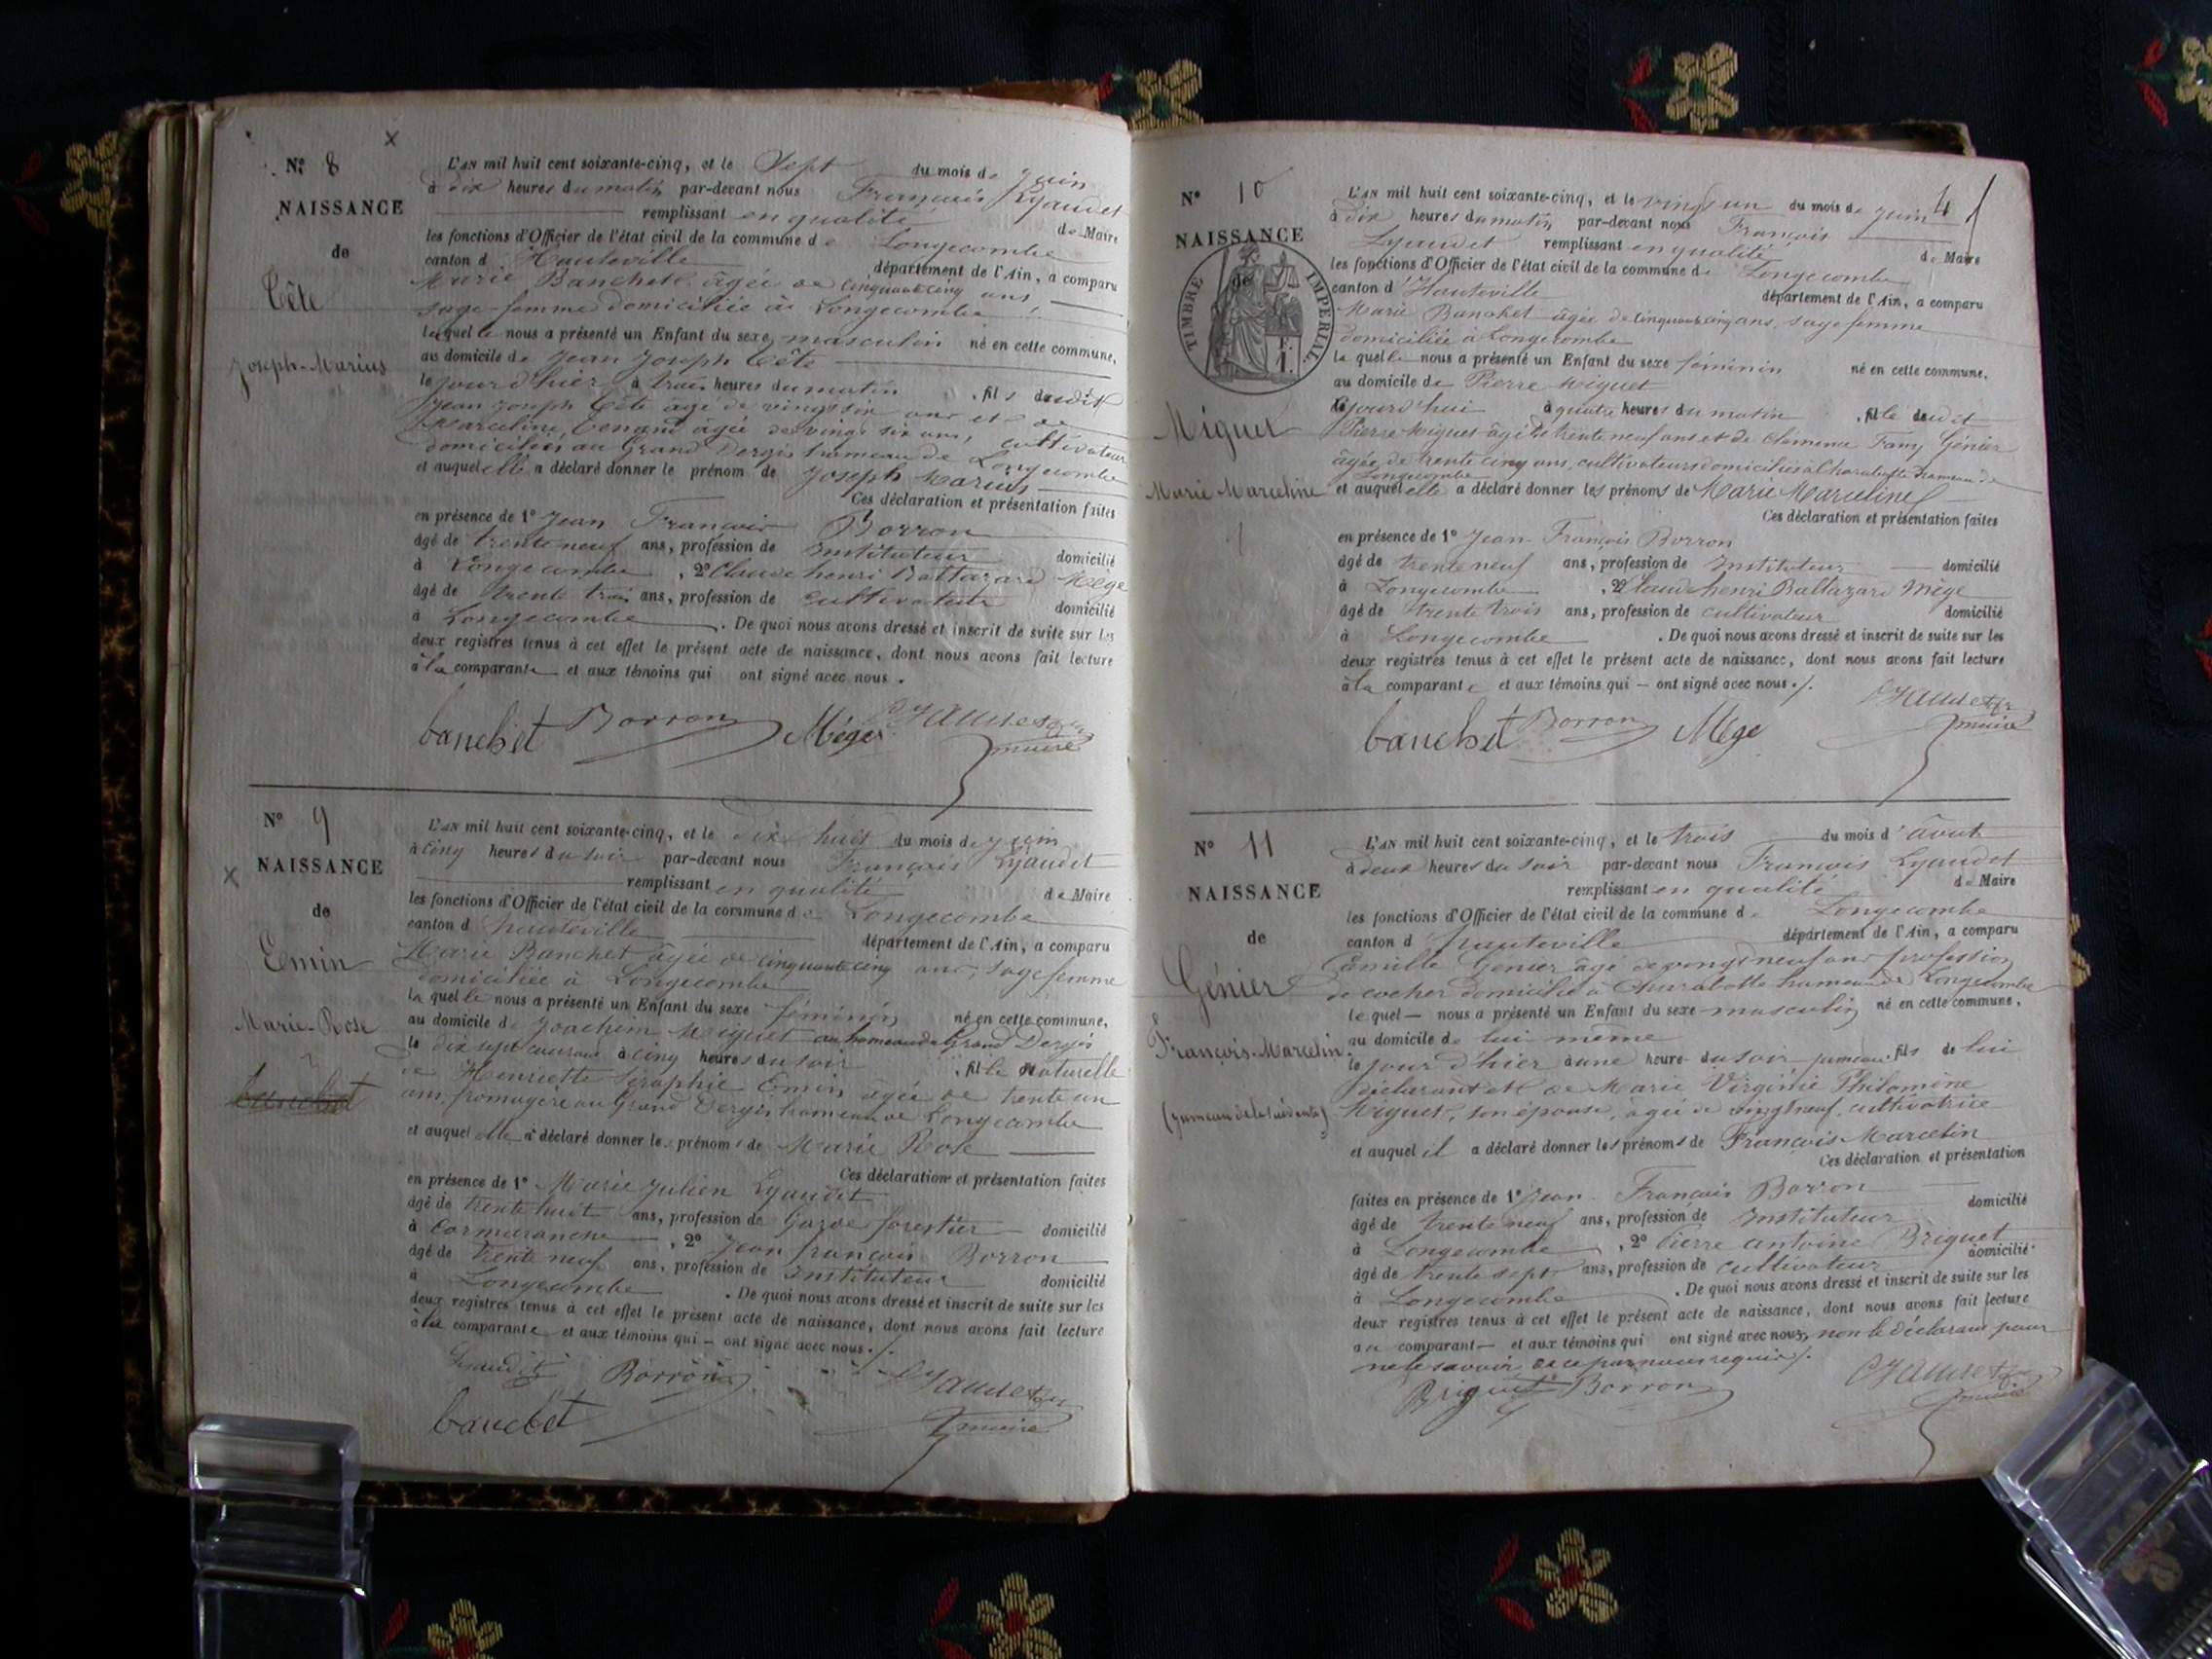 Nº 8
NAISSANCE
de
Tête
Joseph-Marius
L'AN mil huit cent soixante-cinq, et le Sept du mois de juin
à dix heures du matin par-devant nous François Lyaudet
remplissant en qualité de Maire
les fonctions d'Officier de l'état civil de la commune de Longecombe
canton d'Hauteville département de l'Ain, a comparu
Marie Banchet âgée de cinquante cinq ans,
sage femme domiciliée à Longecombe
laquelle nous a présenté un Enfant du sexe masculin né en cette commune,
au domicile de Jean Joseph Tête
le jour d'hier à trois heures du matin , fils dudit
Jean Joseph Tête âgé de vingt six ans et de
Marceline âgée de vingt six ans, cultivateurs
domiciliés au Grand Dergis hameau de Longecombe
et auquel elle a déclaré donner le prénom de Joseph Marius
Ces déclaration et présentation faites
en présence de 1º Jean François Borron
âgé de trente neuf ans, profession de Instituteur domicilié
à Longecombe , 2º Claude henri Baltazard Mège
âgé de trente trois ans, profession de cultivateur domicilié
à Longecombe . De quoi nous avons dressé et inscrit de suite sur les
deux registres tenus à cet effet le présent acte de naissance, dont nous avons fait lecture
à la comparante et aux témoins qui ont signé avec nous.
banchet Borron Mège Lyaudet
maire
Nº 9
NAISSANCE
de
Emin
Marie-Rose
banchet
L'AN mil huit cent soixante-cinq, et le dix huit du mois de juin
à cinq heures du soir par-devant nous François Lyaudet
remplissant en qualité de Maire
les fonctions d'Officier de l'état civil de la commune de Longecombe
canton d'hauteville département de l'Ain, a comparu
Marie Banchet âgée de cinquante cinq ans, sage femme
domiciliée à Longecombe
laquelle nous a présenté un Enfant du sexe féminin né en cette commune,
au domicile de Joachim Miguet au hameau du Grand Dergis
le dix sept courant à cinq heures du soir , fille naturelle
de Henriette Séraphie Emin âgée de trente un
ans, fromagère au Grand Dergis hameau de Longecombe
et auquel elle a déclaré donner les prénoms de Marie Rose
Ces déclaration et présentation faites
en présence de 1º Marie Julien Lyaudet
âgé de trente huit ans, profession de Garde forestier domicilié
à Cormaranche , 2º Jean françois Borron
âgé de trente neuf ans, profession de Instituteur domicilié
à Longecombe . De quoi nous avons dressé et inscrit de suite sur les
deux registres tenus à cet effet le présent acte de naissance, dont nous avons fait lecture
à la comparante et aux témoins qui — ont signé avec nous ./.
Lyaudet Borron Lyaudet
banchet maire
Nº 10
NAISSANCE
de
TIMBRE IMPERIAL
Miguet
Marie Marceline
4
L'AN mil huit cent soixante-cinq, et le vingt un du mois de juin
à dix heures du matin par-devant nous François
Lyaudet remplissant en qualité de Maire
les fonctions d'Officier de l'état civil de la commune de Longecombe
canton d'Hauteville département de l'Ain, a comparu
Marie Banchet âgée de cinquante cinq ans, sage femme
domiciliée à Longecombe
laquelle nous a présenté un Enfant du sexe féminin né en cette commune,
au domicile de Pierre Miguet
jourd'hui à quatre heures du matin , fille dudit
Pierre Miguet âgé de trente neuf ans et de Clémence Fany Génier
âgée de trente cinq ans, cultivateurs domiciliés à Charabotte hameau de
Longecombe
et auquel elle a déclaré donner les prénoms de Marie Marceline
Ces déclaration et présentation faites
en présence de 1º Jean François Borron
âgé de trente neuf ans, profession de Instituteur domicilié
à Longecombe , 2º Claude henri Baltazard Mège
âgé de trente trois ans, profession de cultivateur domicilié
à Longecombe . De quoi nous avons dressé et inscrit de suite sur les
deux registres tenus à cet effet le présent acte de naissance, dont nous avons fait lecture
à la comparante et aux témoins qui — ont signé avec nous ./.
banchet Borron Mège Lyaudet
maire
Nº 11
NAISSANCE
de
Génier
François-Marcelin
L'AN mil huit cent soixante-cinq, et le trois du mois d'août
à deux heures du soir par-devant nous François Lyaudet
remplissant en qualité de Maire
les fonctions d'Officier de l'état civil de la commune de Longecombe
canton d'hauteville département de l'Ain, a comparu
Camille Génier âgé de vingt neuf ans profession
de cocher domicilié à Charabotte hameau de Longecombe
lequel — nous a présenté un Enfant du sexe masculin né en cette commune,
au domicile de lui même
le jour d'hier à une heure du soir jumeau fils de lui
déclarant et de Marie Virginie Philomène
Miguet, son épouse, âgée de vingt neuf, cultivatrice
(jumeau de la suivante)
et auquel il a déclaré donner les prénoms de François Marcelin
Ces déclaration et présentation
faites en présence de 1º Jean François Borron
âgé de trente neuf ans, profession de Instituteur domicilié
à Longecombe , 2º Pierre antoine Briguet
âgé de trente sept ans, profession de cultivateur domicilié
à Longecombe . De quoi nous avons dressé et inscrit de suite sur les
deux registres tenus à cet effet le présent acte de naissance, dont nous avons fait lecture
au comparant — et aux témoins qui ont signé avec nous, non le déclarant pour
ne le savoir de ce par nous requis ./.
Briguet Borron Lyaudet
maire